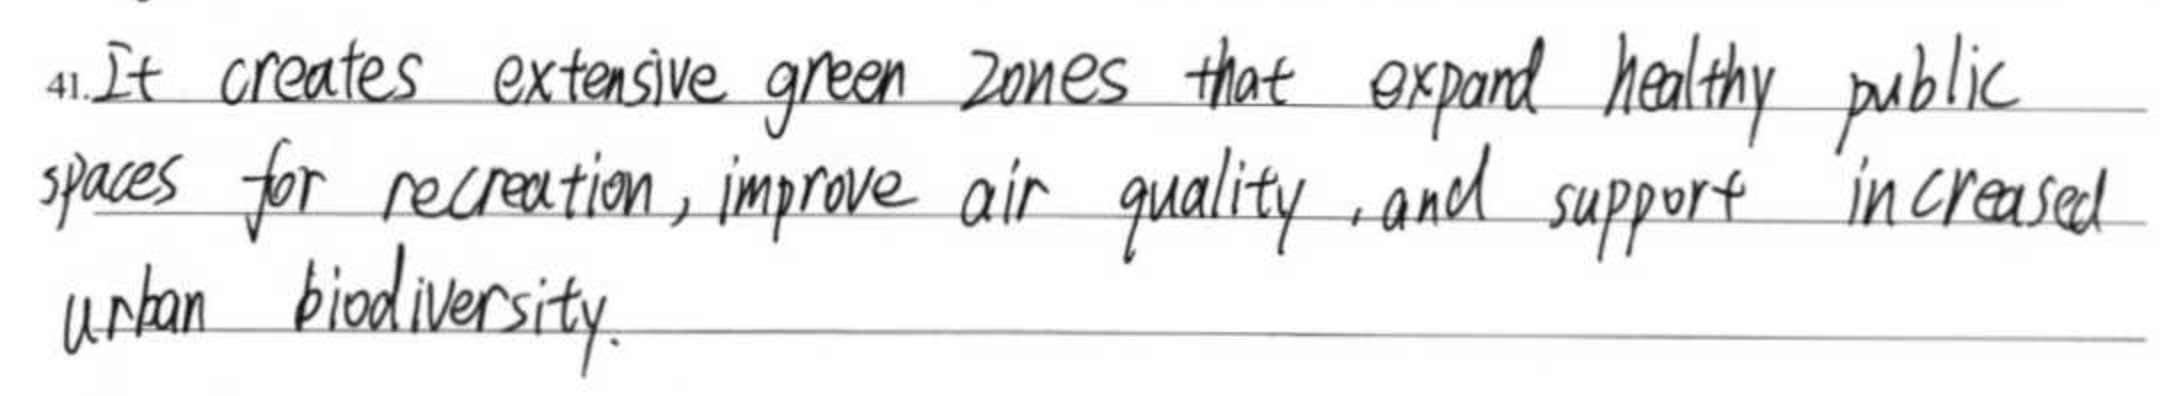 41. It creates extensive green zones that expand healthy public
spaces for recreation, improve air quality, and support increased
urban biodiversity.